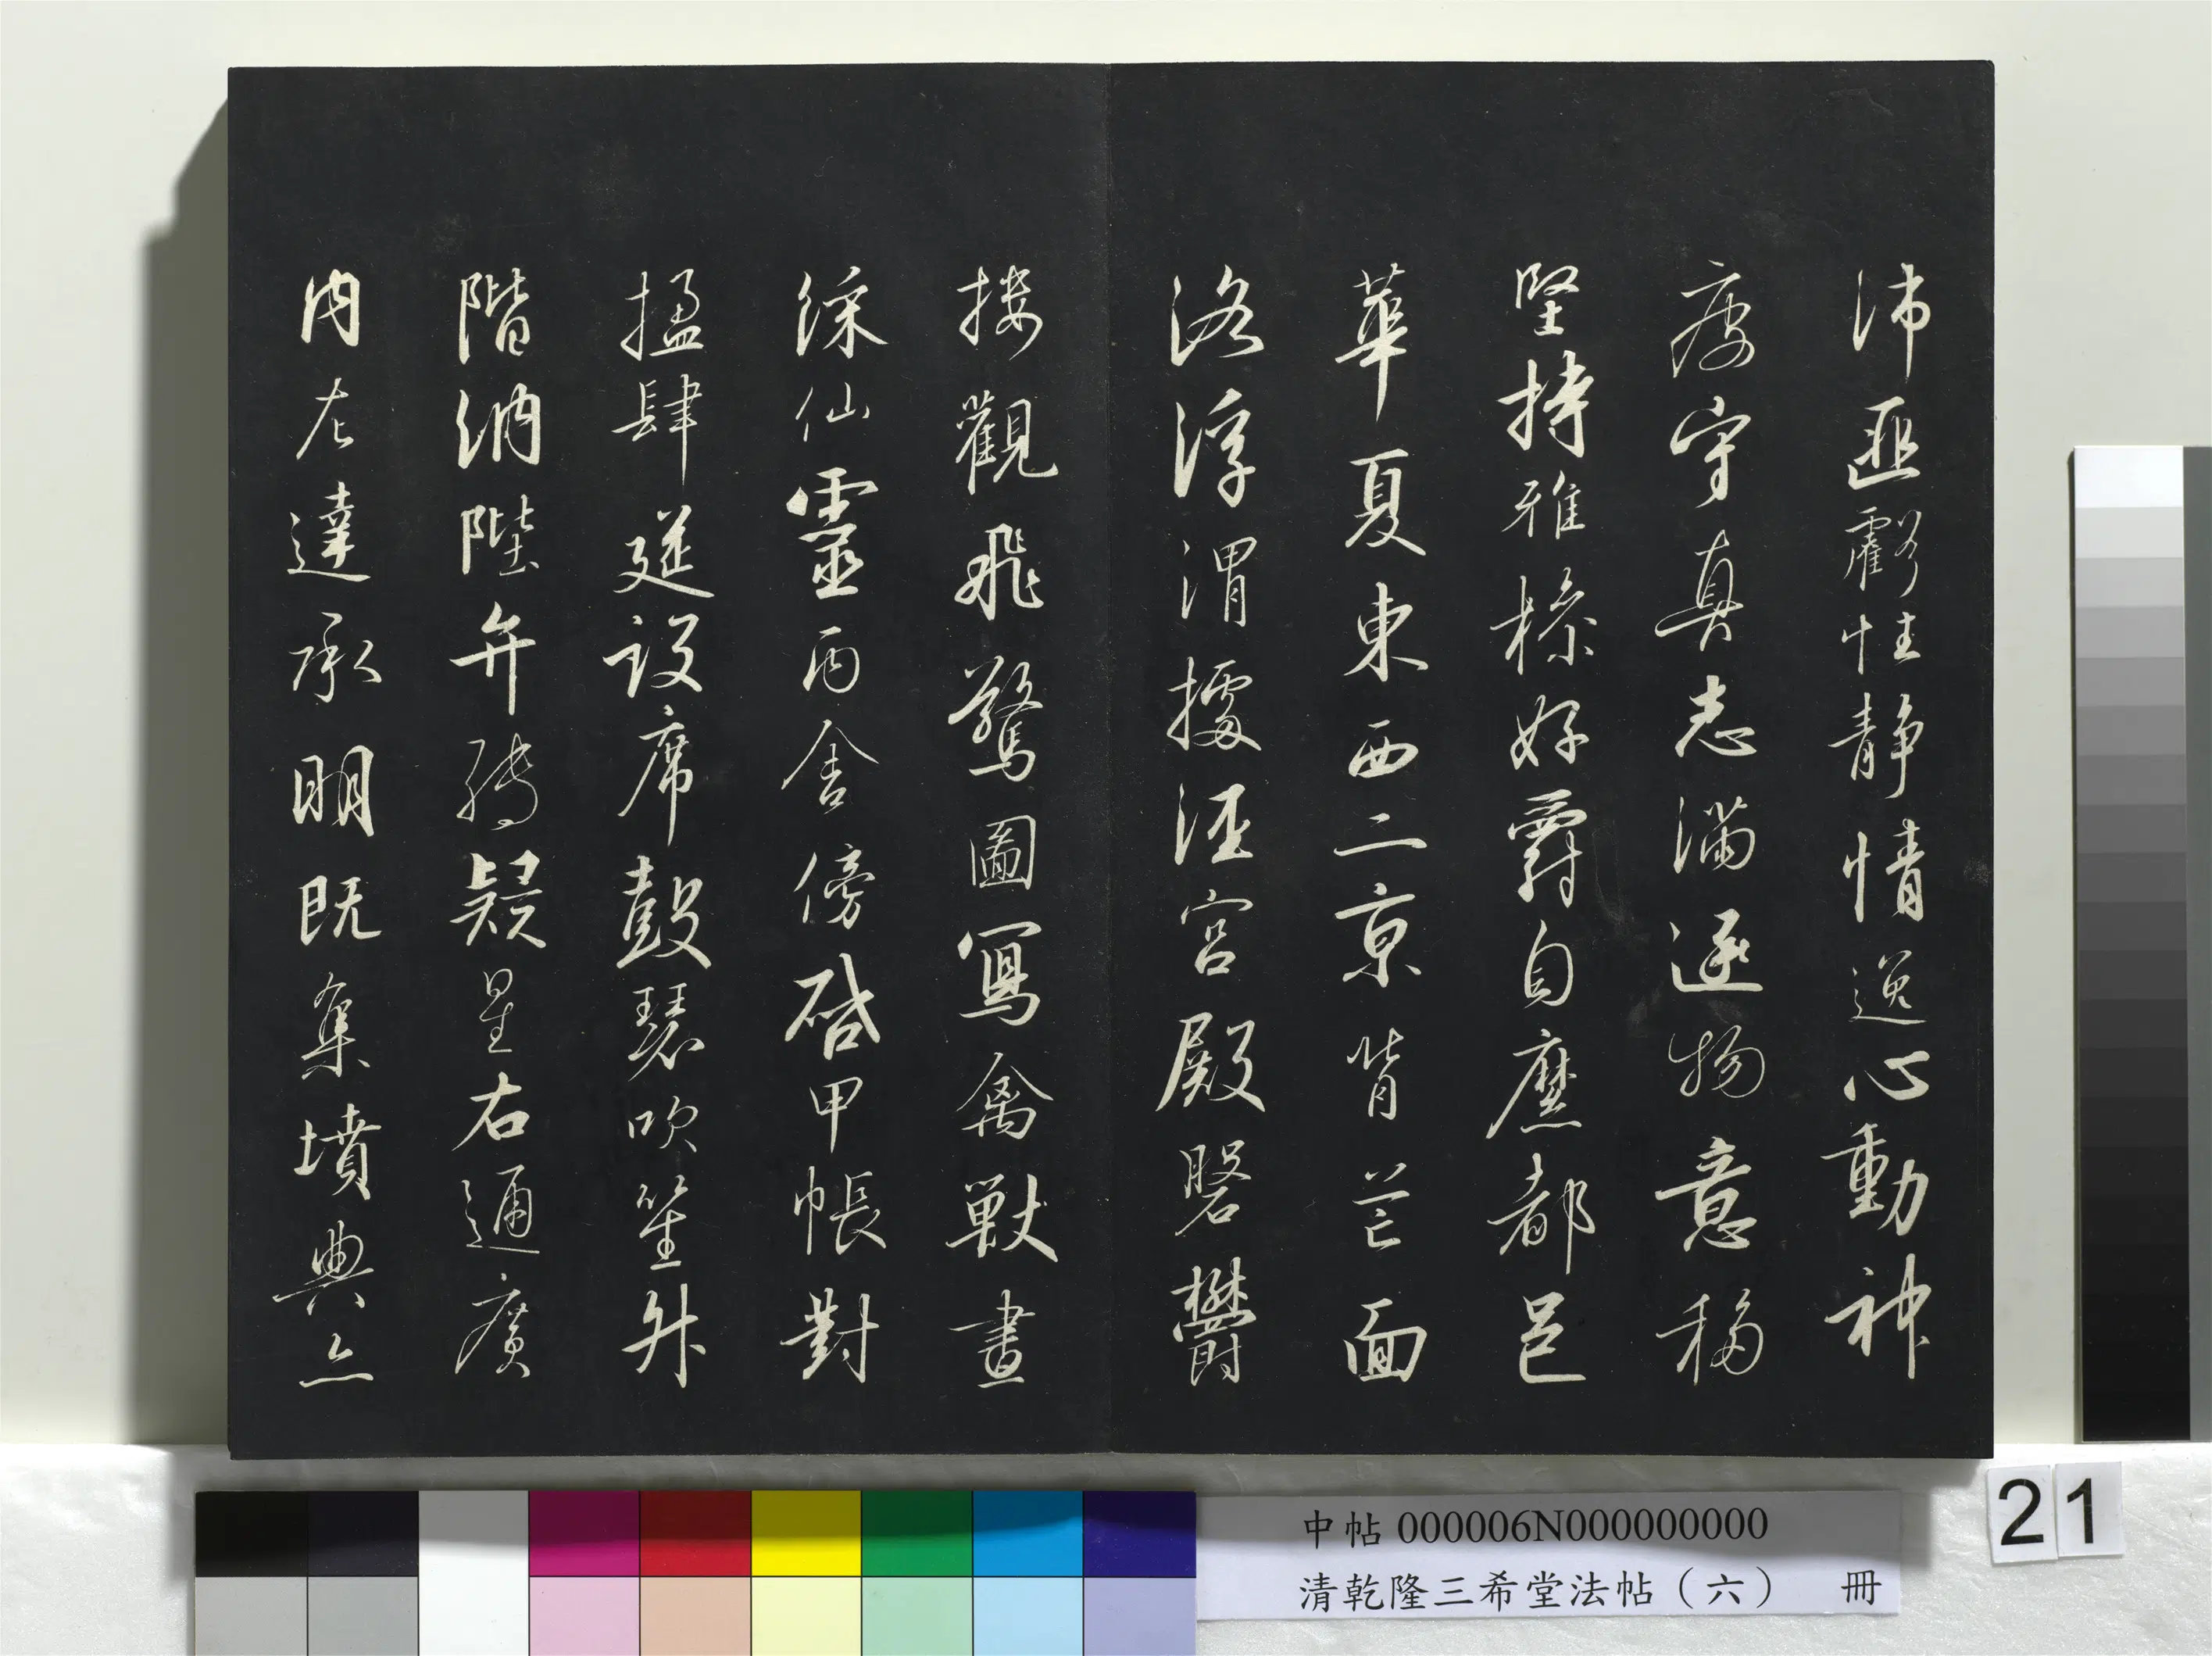 沛匪虧性静情逸心動神
疲守真志滿逐物意移
堅持雅操好爵自縻都邑
華夏東西二京背芒面
洛浮渭據涇宮殿磐鬱
樓觀飛驚圖寫禽獸畫
綵仙靈丙舍傍啓甲帳對
楹肆筵設席鼓瑟吹笙升
階納陛弁轉疑星右通廣
內左達承明既集墳典亦
中帖 000006N000000000
清乾隆三希堂法帖（六） 冊
21